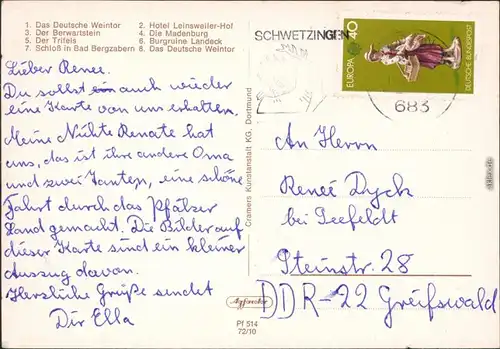 1. Das Deutsche Weintor
2. Hotel Leinsweiler-Hof
3. Der Berwartstein
4. Die Madenburg
5. Der Trifels
6. Burgruine Landeck
7. Schloß in Bad Bergzabern
8. Das Deutsche Weintor
Lieber Renee.
Du sollst auch wieder
eine Karte von uns erhalten.
Meine Nichte Renate hat
uns, das ist ihre andere Oma
und zwei Tanten, eine schöne
Fahrt durch das Pfälzer
Land gemacht. Die Bilder auf
dieser Karte sind ein kleiner
Auszug davon.
Herzliche Grüße sendet
Dir Ella
Cramers Kunstanstalt KG, Dortmund
Agfacolor
Pf 514
72/10
SCHWETZINGEN
683
EUROPA 40
DEUTSCHE BUNDESPOST
An Herrn
Reneé Dyck
bei Seefeldt
Steinstr. 28
DDR-22 Greifswald